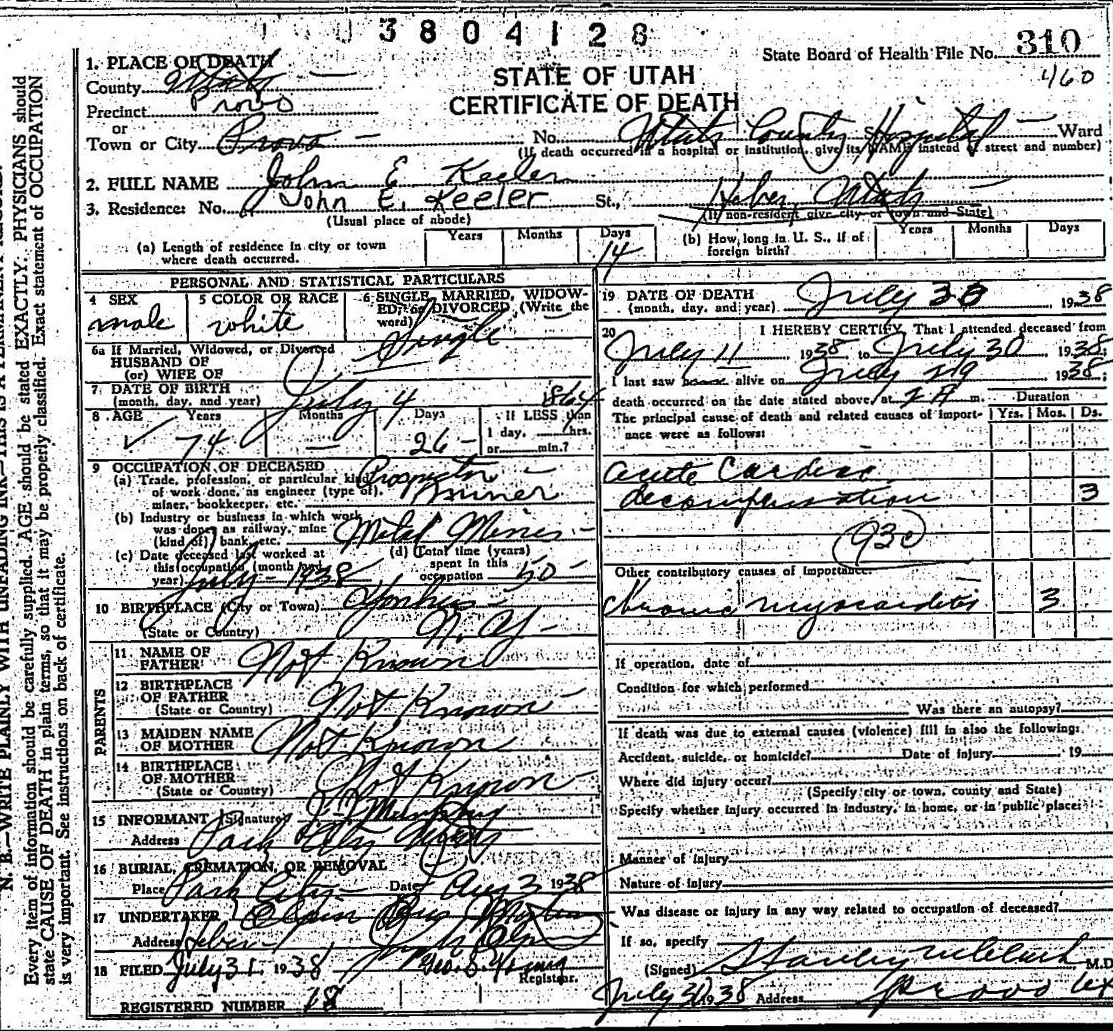 3804128
State Board of Health File No. 310
460
STATE OF UTAH
CERTIFICATE OF DEATH
1. PLACE OF DEATH
County Utah
Precinct Provo
or
Town or City Provo No. Utah County Hospital Ward
(If death occurred in a hospital or institution, give its NAME instead of street and number)
2. FULL NAME John E Keeler
3. Residence: No. John E. Keeler St., Heber, Utah
(Usual place of abode) (If non-resident give city or town and State)
(a) Length of residence in city or town where death occurred. Years Months Days 14
(b) How long in U. S., if of foreign birth? Years Months Days
PERSONAL AND STATISTICAL PARTICULARS
4 SEX male
5 COLOR OR RACE white
6 SINGLE, MARRIED, WIDOWED, or DIVORCED, (Write the word) Single
6a If Married, Widowed, or Divorced
HUSBAND OF
(or) WIFE OF
7 DATE OF BIRTH
(month, day, and year) July 4 1864
8 AGE Years 74 Months — Days 26
If LESS than 1 day, hrs. or min.?
9 OCCUPATION OF DECEASED
(a) Trade, profession, or particular kind of work done, as engineer (type of), miner, bookkeeper, etc. Prospector miner
(b) Industry or business in which work was done, as railway, mine (kind of) bank, etc. Metal Mines
(c) Date deceased last worked at this occupation (month and year) July - 1938
(d) Total time (years) spent in this occupation 50
10 BIRTHPLACE (City or Town) Yonkers
(State or Country) N. Y.
PARENTS
11. NAME OF FATHER Not Known
12 BIRTHPLACE OF FATHER
(State or Country) Not Known
13 MAIDEN NAME OF MOTHER Not Known
14 BIRTHPLACE OF MOTHER
(State or Country) Not Known
15 INFORMANT (Signature) Murphy
Address Park City Utah
16 BURIAL, CREMATION, OR REMOVAL
Place Park City Date Aug 3 1938
17 UNDERTAKER
Address Heber
18 FILED July 31 1938 Registrar.
REGISTERED NUMBER 18
19 DATE OF DEATH
(month, day, and year) July 30 1938
20 I HEREBY CERTIFY, That I attended deceased from
July 11 1938 to July 30 1938
I last saw alive on July 29 1938;
death occurred on the date stated above, at 2 A m.
Duration
The principal cause of death and related causes of importance were as follows: Yrs. Mos. Ds.
acute cardiac
decompensation 3
Other contributory causes of importance:
chronic myocarditis 3
If operation, date of
Condition for which performed
Was there an autopsy?
If death was due to external causes (violence) fill in also the following:
Accident, suicide, or homicide? Date of injury 19
Where did injury occur?
(Specify city or town, county and State)
Specify whether injury occurred in industry, in home, or in public place:
Manner of injury
Nature of injury
Was disease or injury in any way related to occupation of deceased?
If so, specify
(Signed) Stanley M.D.
July 31 1938 Address Provo
N. B.—WRITE PLAINLY WITH UNFADING INK—THIS IS A PERMANENT RECORD.
Every item of information should be carefully supplied. AGE should be stated EXACTLY. PHYSICIANS should
state CAUSE OF DEATH in plain terms, so that it may be properly classified. Exact statement of OCCUPATION
is very important. See instructions on back of certificate.